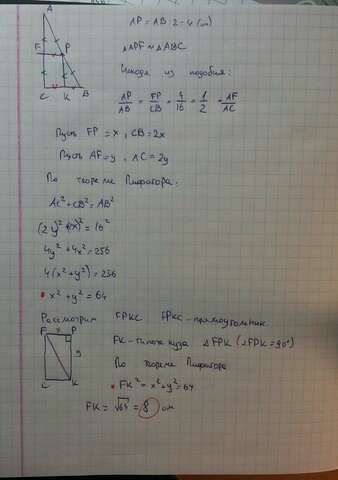 A
F
P
C
K
B
AP = AB : 2 = 4 (см)
△APF ∾ △ABC
Исходя из подобия:
AP/AB = FP/CB = 4/16 = 1/2 = AF/AC
Пусть FP = x, CB = 2x
Пусть AF = y, AC = 2y
По теореме Пифагора:
AC² + CB² = AB²
(2y)² + (x)² = 16²
4y² + 4x² = 256
4(x² + y²) = 256
x² + y² = 64
Рассмотрим FPKC FPKC - прямоугольник
F
x
P
y
C
K
FK - гипотенуза △FPK (∠FPK = 90°)
По теореме Пифагора
FK² = x² + y² = 64
FK = √64 = 8 см